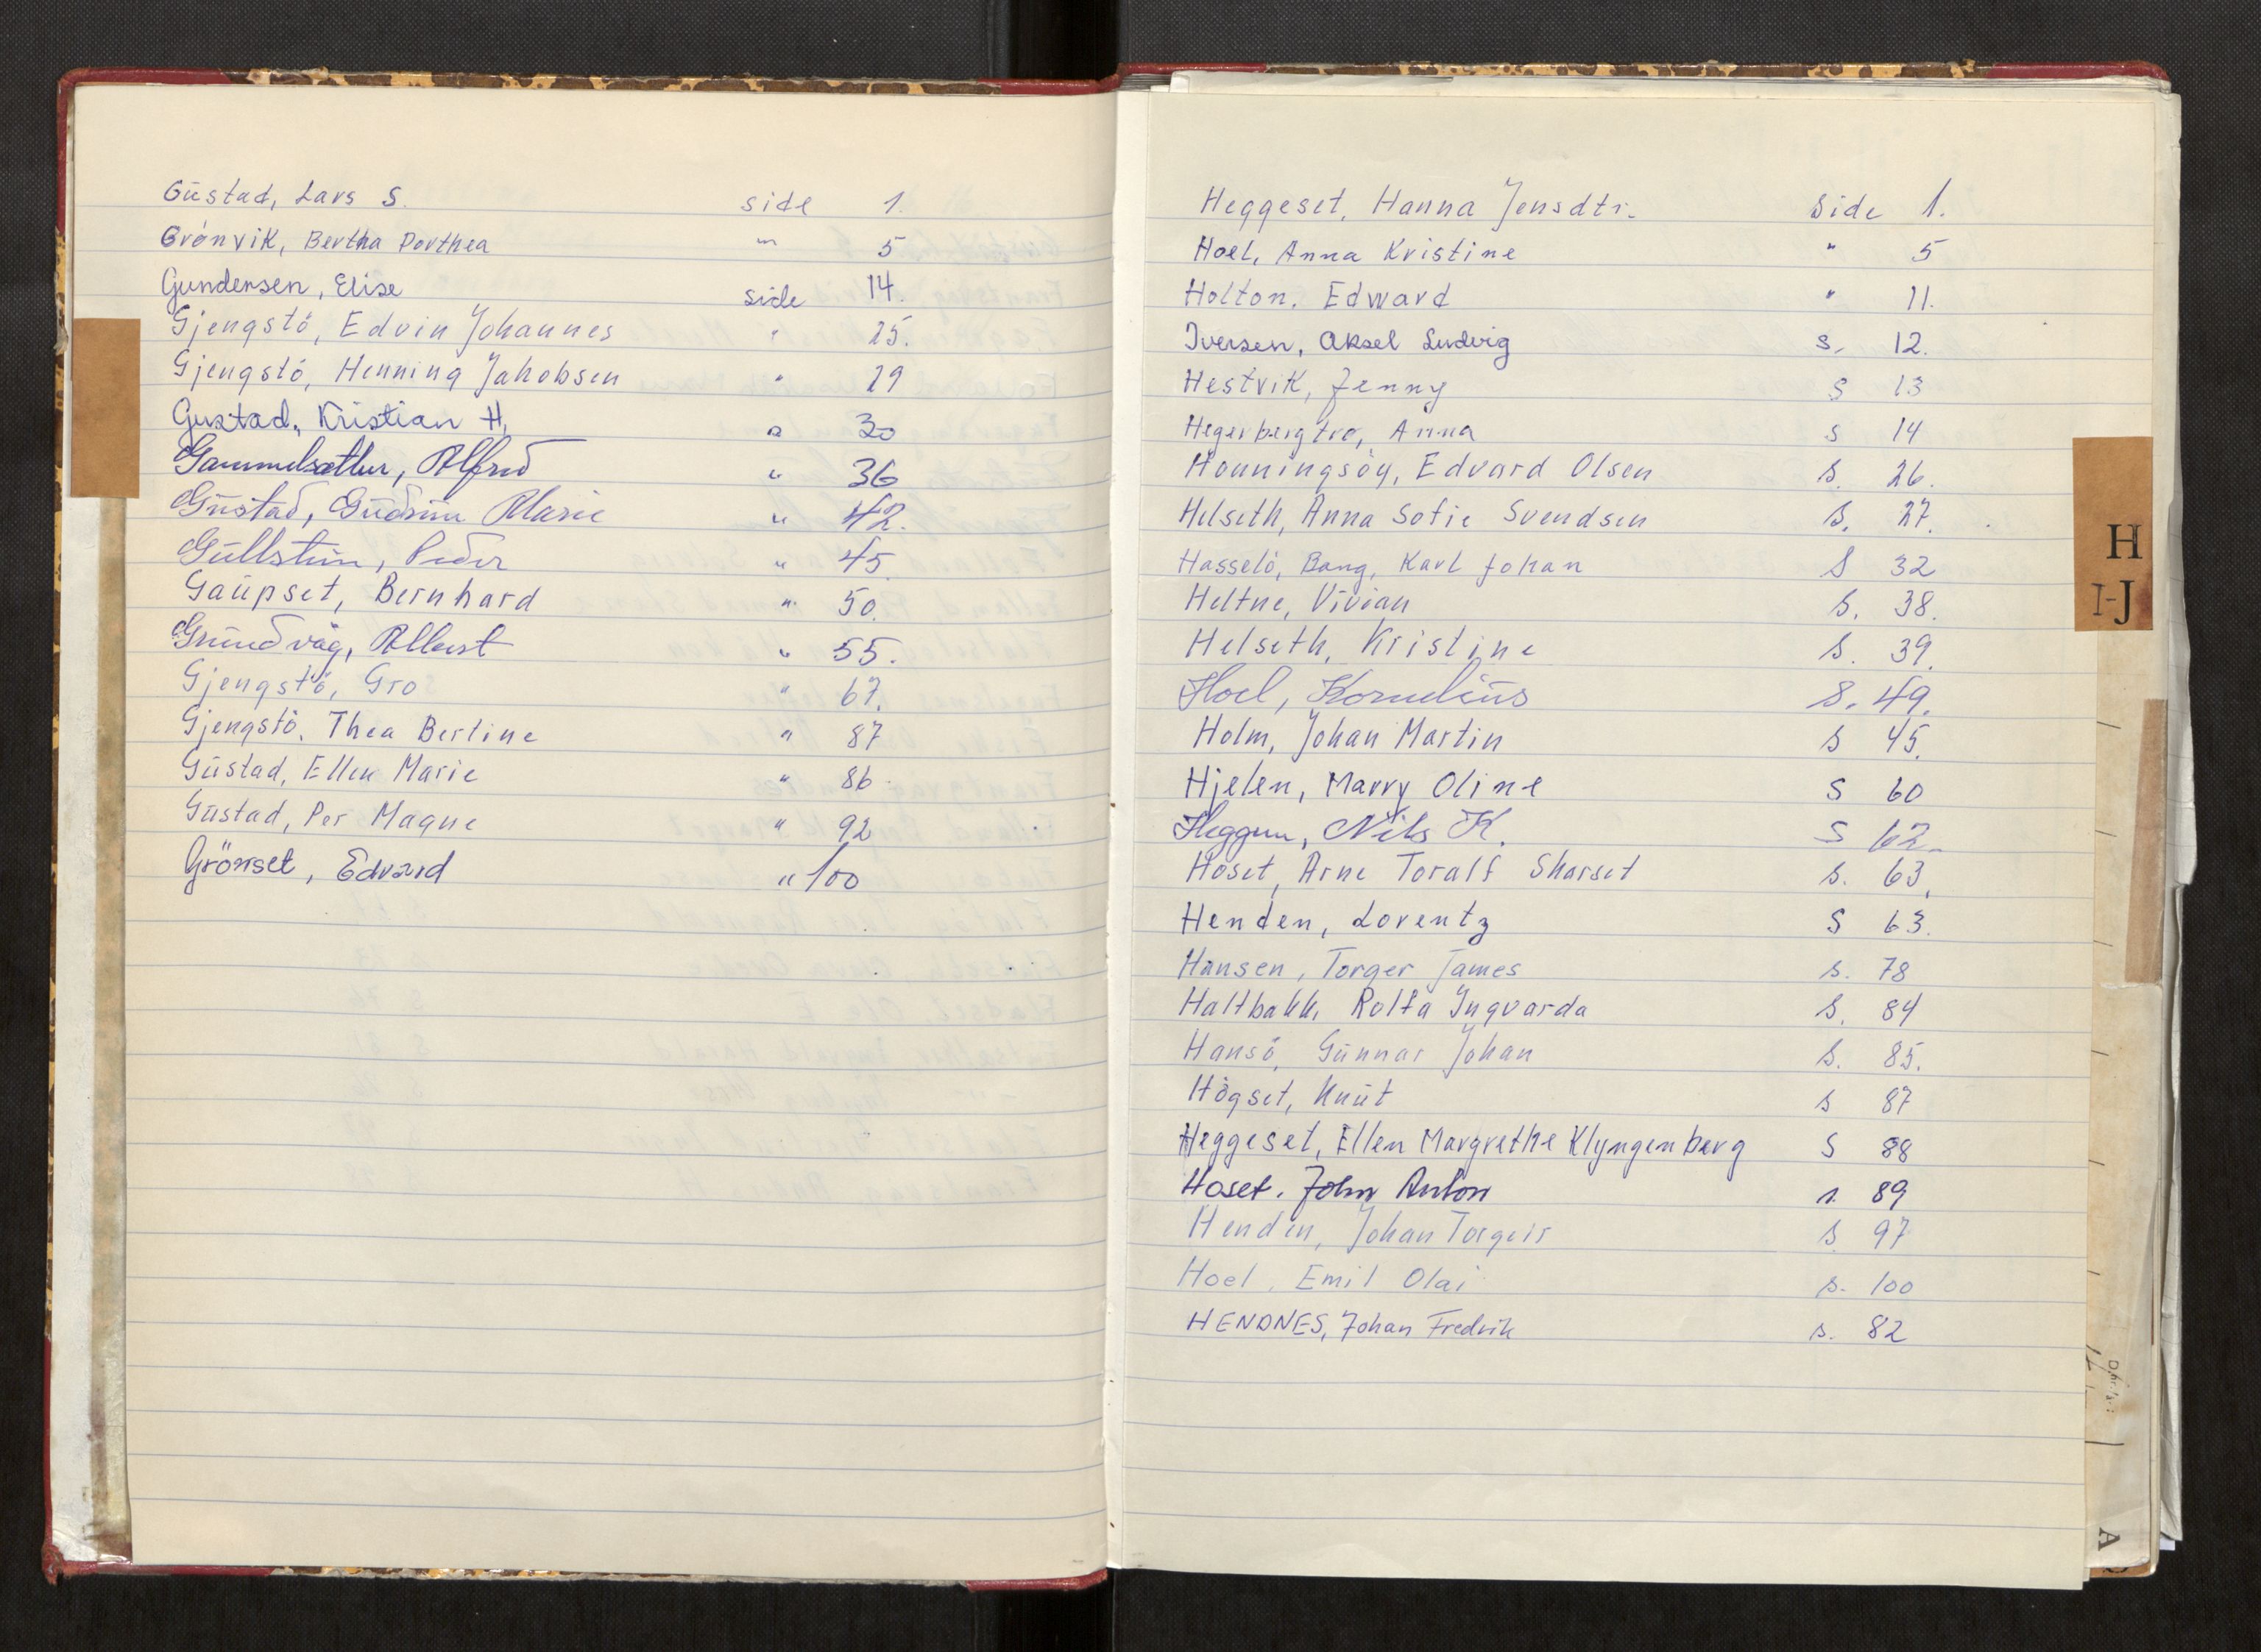 Güstad, Lars S. side 1.
Grönvik, Bertha Dorthea " 5
Gundersen, Elise side 14.
Gjengstö, Edvin Johannes " 25.
Gjengstö, Henning Jahobsen " 29
Gustad, Kristian H. " 30
Gammelsæther, Alfred " 36
Güstad, Güdrün Marie " 42.
Güllstein, Peder " 45.
Gaüpset, Bernhard " 50.
Gründvåg, Albert " 55.
Gjengstö, Gro " 67.
Gjengstö, Thea Berline " 87
Güstad, Ellen Marie " 86
Güstad, Per Magne " 92
Grönset, Edvard " 100
Heggeset, Hanna Jensdtr. Side 1.
Hoel, Anna Kristine " 5
Holton. Edward " 11.
Iversen, Aksel Ludvig s. 12.
Hestvik, Jenny S 13
Hegerbergtrø, Anna s 14
Honningsöy, Edvard Olsen s. 26.
Helseth, Anna Sofie Svendsen s. 27.
Hasselö, Bang, Karl Johan S 32
Heltne, Vivian s. 38.
Helseth, Kristine s. 39.
Hoel, Kornelius S. 49.
Holm, Johan Martin s 45.
Hjelen, Marry Oline S 60
Heggem, Nils K. S 62.
Hoset, Arne Toralf Skarset s. 63.
Henden, Lorentz S 63.
Hansen, Torger James s. 78
Haltbakk, Rolfa Ingvarda s. 84
Hansö, Günnar Johan s. 85.
Högset, Knüt s 87
Heggeset, Ellen Margrethe Klyngenberg S 88
Hoset. John Anton s. 89
Henden, Johan Torgeir s 97
Hoel, Emil Olai s. 100
HENDNES, Johan Fredrik s. 82
H
I-J
A